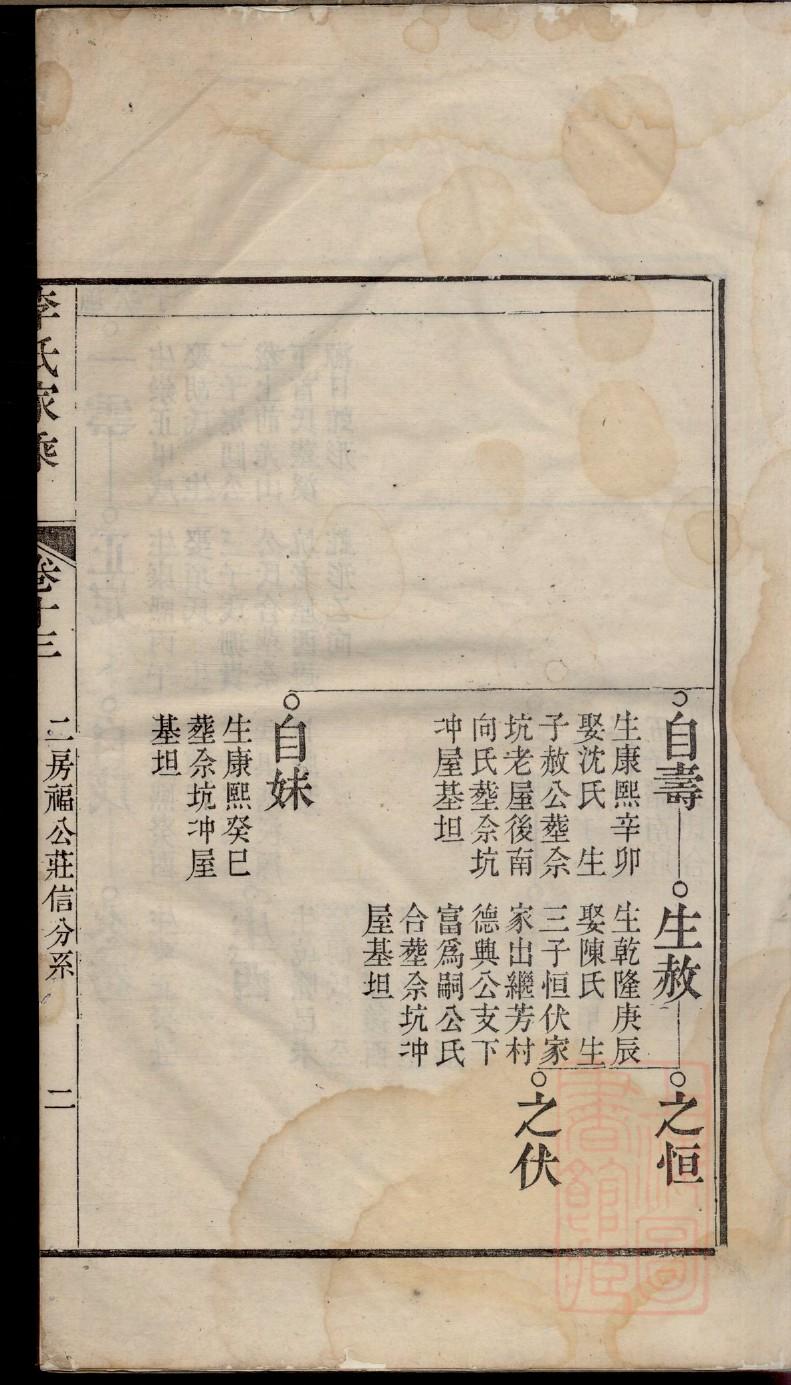 自壽
生康熙辛卯
娶沈氏 生
子赦公塟佘
坑老屋後南
向氏塟佘坑
冲屋基坦
生赦
生乾隆庚辰
娶陳氏 生
三子恒伏家
家出繼芳村
德興公支下
富爲嗣公氏
合塟佘坑冲
屋基坦
之恒
之伏
自妹
生康熙癸巳
塟佘坑冲屋
基坦
李氏家乘
卷十三
二房福公莊信分系
二